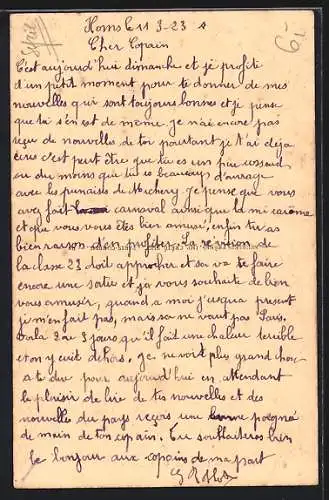 Homs le 11 3-23
Cher Copain
C'est aujourd'hui dimanche et je profite
d'un petit moment pour te donner de mes
nouvelles qui sont toujours bonnes et je pense
que toi s'en est de meme je n'ai encore pas
reçu de nouvelles de toi pourtant je t'ai deja
ecris c'est peut être que tu es un peu cossard
ou du moins que tu as beaucoup d'ouvrage
avec les punaises de je pense que vous
avez fait carnaval ainsi que la mi carême
et que vous vous êtes bien amusé, enfin tu as
bien raison d'en profiter. La révision de
la classe 23 doit approcher et sa va te faire
encore une sortie et je vous souhaite de bien
vous amuser, quand a moi jusqua present
je m'en fait pas, mais sa ne vaut pas Paris.
Voila 2 a 3 jours qu'il fait une chaleur terrible
et on y cuit dehors. Je ne voit plus grand chose
a te dire pour aujourd'hui en attendant
le plaisir de lire de tes nouvelles et des
nouvelles du pays reçois une bonne poignée
de main de ton copain. Tu souhaiteras bien
le bonjour aux copains de ma part